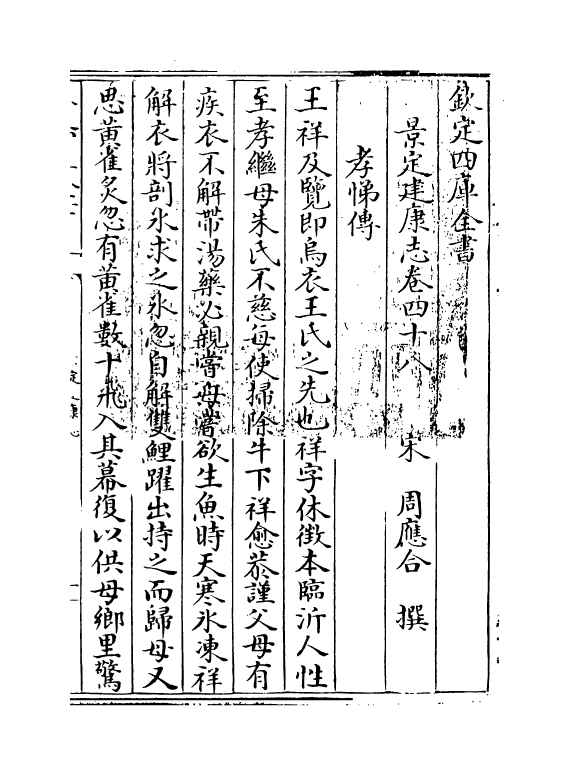 欽定四庫全書
景定建康志卷四十八　宋　周應合　撰
孝悌傳
王祥及覽即烏衣王氏之先也祥字休徵本臨沂人性
至孝繼母朱氏不慈每使掃除牛下祥愈恭謹父母有
疾衣不解帶湯藥必親嘗母嘗欲生魚時天寒氷凍祥
解衣將剖氷求之氷忽自解雙鯉躍出持之而歸母又
思黄雀炙忽有黄雀數十飛入其幕復以供母鄉里驚